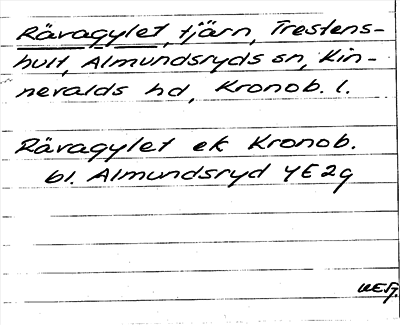 Rävagylet, tjärn, Trestens-
hult, Almundsryds sn, Kin-
nevalds hd, Kronob. l.
Rävagylet ek Kronob.
bl. Almundsryd 4E2g